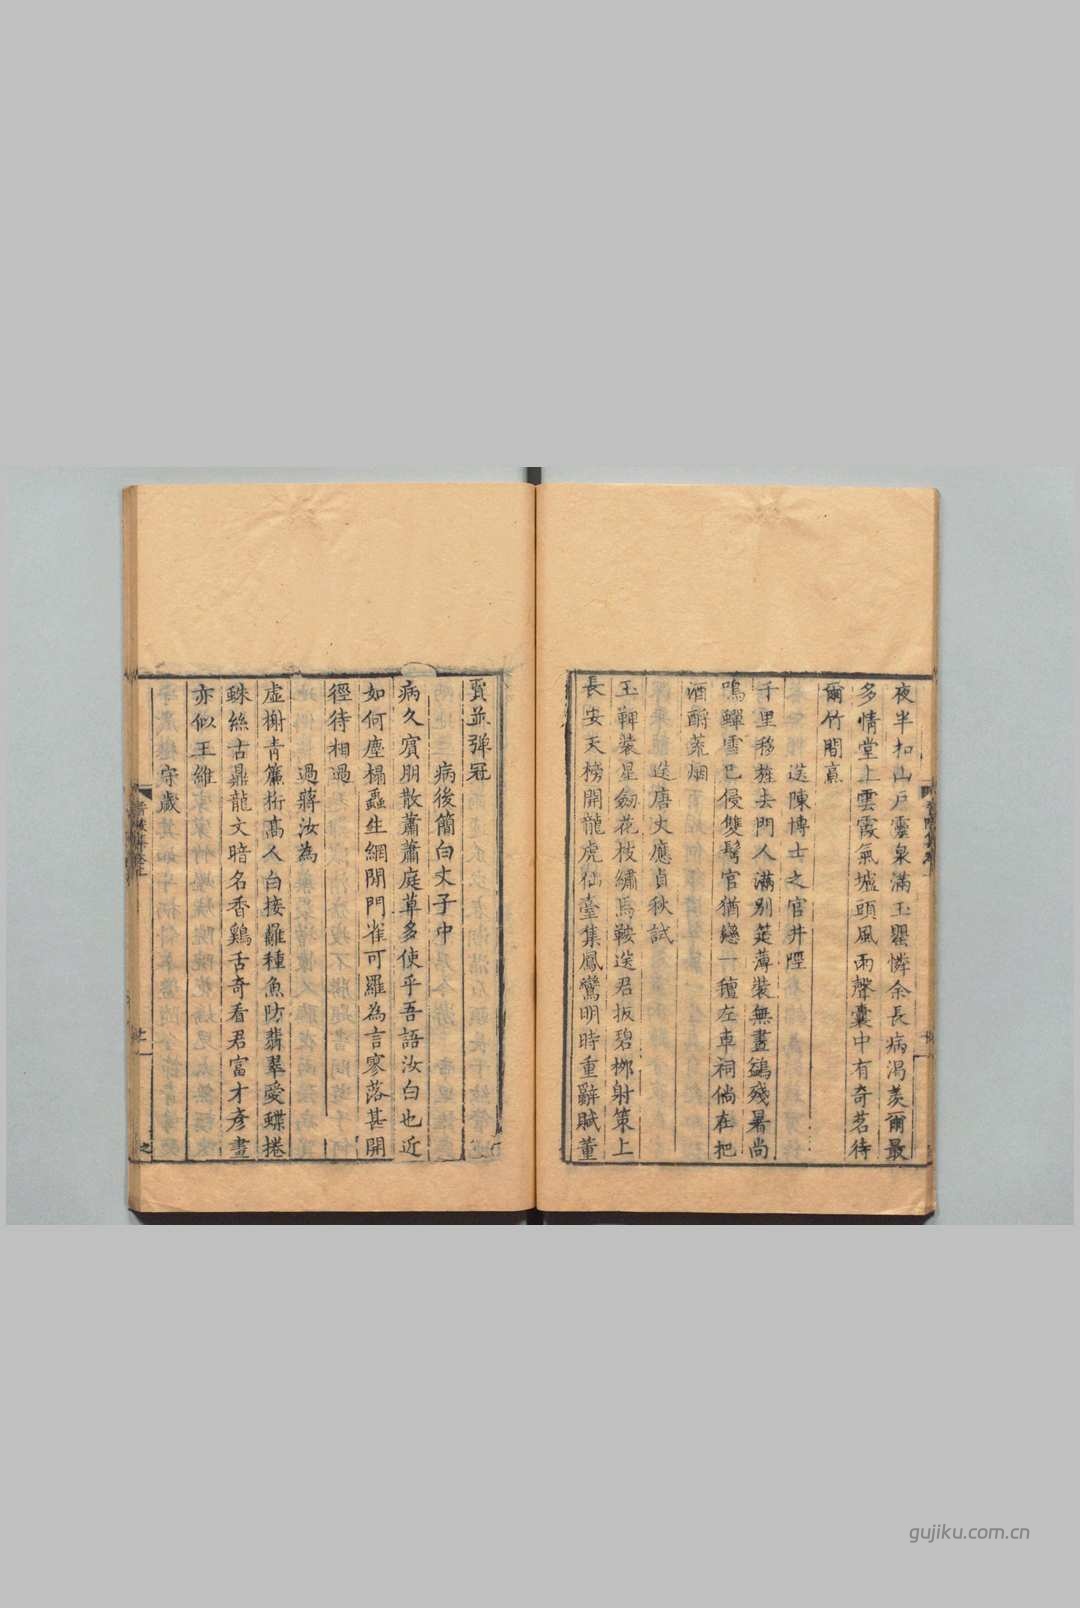 夜半扣山戶靈泉滿玉罌憐余長病渴羨爾最
多情堂上雲霞氣壚頭風雨聲囊中有奇茗待
爾竹間烹
送陳博士之官井陘
千里移旌去門人滿別筵薄裝無畫鷁殘暑尚
鳴蟬雪已侵雙鬢官猶戀一氊左車祠倘在把
酒酹荒烟
送唐丈應貞秋試
玉鞞裝星劒花枝繡馬鞍送君扳碧桞射策上
長安天榜開龍虎仙臺集鳳鸞明時重辭賦董
賈並彈冠
病後簡白丈子中
病久賓朋散蕭蕭庭草多使乎吾語汝白也近
如何塵榻蟲生網閒門雀可羅為言寥落甚開
徑待相過
過蔣汝為
虛榭青簾桁高人白接䍦種魚防翡翠愛蝶捲
蛛絲古鼎龍文暗名香雞舌奇看君富才彥畫
亦似王維
守歲
gujiku.com.cn